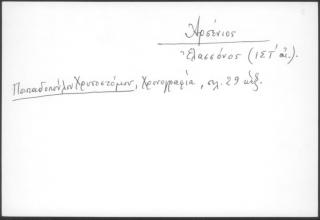 Ἀρσένιος
Ἐλασσόνος (ΙΣΤ' αἰ.).
Παπαδοπούλου Χρυσοστόμου, Χρονογραφία, σελ. 29 κἑξ.